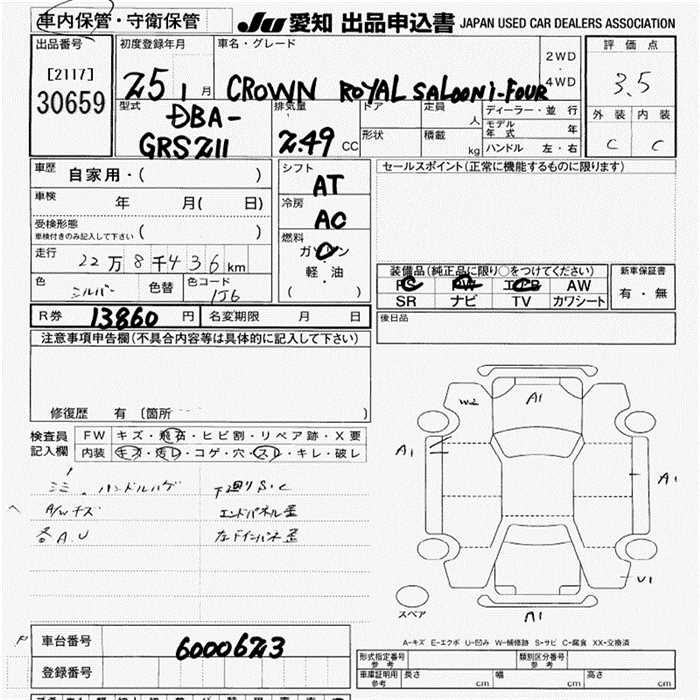 車内保管・守衛保管 JU 愛知 出品申込書 JAPAN USED CAR DEALERS ASSOCIATION
出品番号 初度登録年月 車名・グレード 評価点
[2117] 25 1 月 CROWN ROYAL SALOON i-FOUR 2WD 4WD 3.5
30659 型式 排気量 ドア 定員 人 ディーラー・並 行 外装 内装
DBA- 形状 積載 kg モデル年式 年
GRS211 2.49 CC ハンドル 左・右 C C
車歴 自家用・( ) シフト AT セールスポイント(正常に機能するものに限ります)
車検 年 月( 日) 冷房 AC
受検形態
車検付きのみ記入して下さい ( ) 燃料 ガソリン
走行 22万8千436km 軽・油 装備品(純正品に限り○をつけてください) 新車保証書
色 シルバー 色替 色コード 1J6 ( ) PS PW エアB AW 有・無
SR ナビ TV カワシート
R券 13860 円 名変期限 月 日 後日品
注意事項申告欄(不具合内容等は具体的に記入して下さい)
修復歴 有 [箇所 )
検査員 FW キズ・飛石・ヒビ割・リペア跡・X要
記入欄 内装 キズ・汚レ・コゲ・穴・スレ・キレ・破レ
ハンドルハゲ 下廻りS.C
A/Wキズ エンドパネル歪
各A.U
W2 A1
A1 A1
U1
スペア A1
A-キズ E-エクボ U-凹み W-補修跡 S-サビ C-腐食 XX-交換済
車台番号 6000623
登録番号
形式指定番号 参考 類別区分番号 参考
車庫証明用 参考 長さ cm 幅 cm 高さ cm